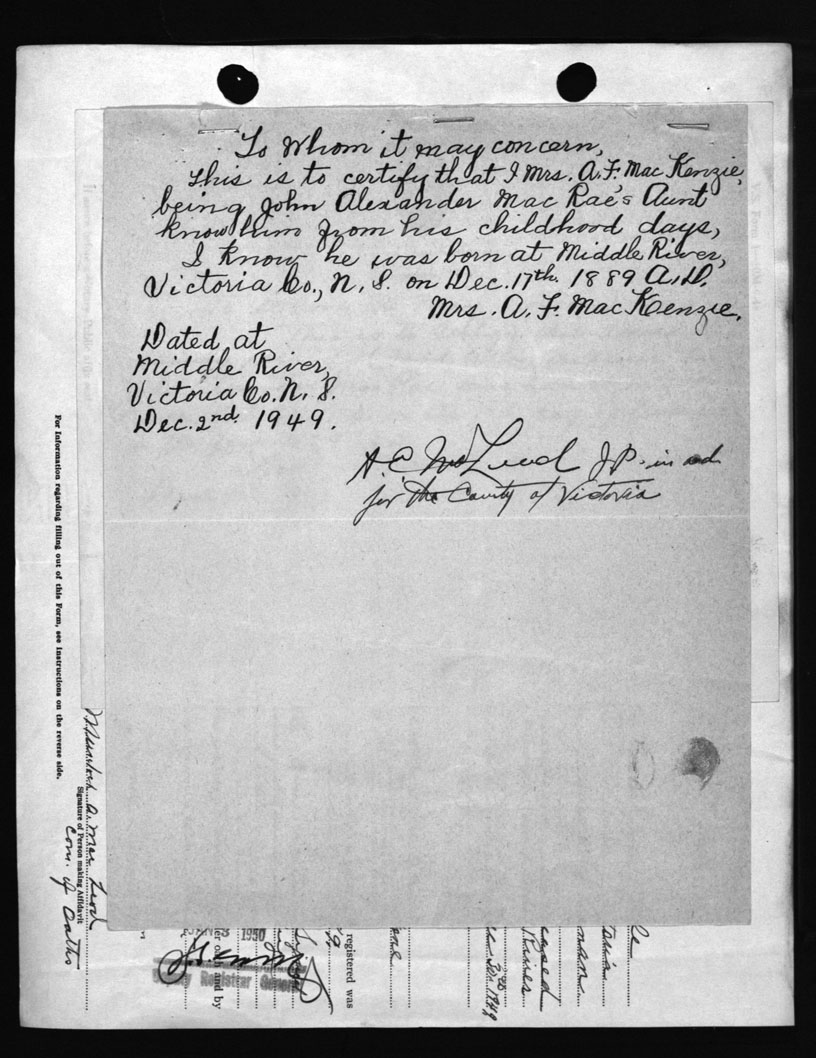 To Whom it may concern,
This is to certify that I Mrs. A. F. Mac Kenzie,
being John Alexander Mac Rae's Aunt
know him from his childhood days,
I know he was born at Middle River,
Victoria Co., N. S. on Dec. 17th. 1889 A. D.
Mrs. A. F. Mac Kenzie.
Dated at
Middle River,
Victoria Co. N. S.
Dec. 2nd. 1949.
J.P. in and
for the County of Victoria
For Information regarding filling out of this Form, see Instructions on the reverse side.
Signature of Person making Affidavit
Com. of Oaths
registered was
1950
and by
Registrar General
River
1949